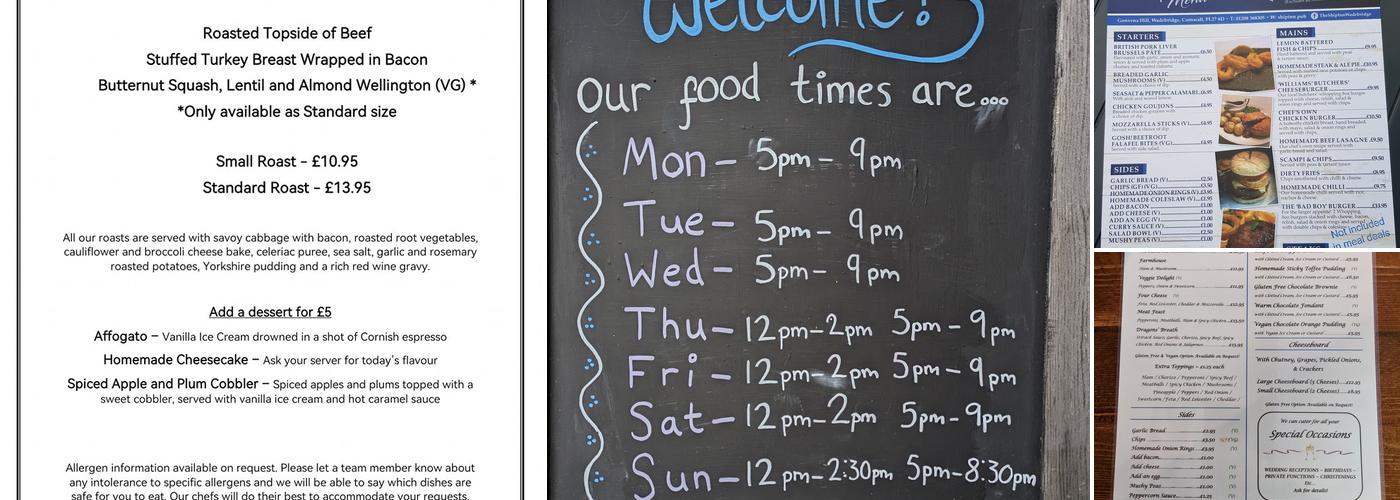 Roasted Topside of Beef
Stuffed Turkey Breast Wrapped in Bacon
Butternut Squash, Lentil and Almond Wellington (VG) *
*Only available as Standard size
Small Roast – £10.95
Standard Roast – £13.95
All our roasts are served with savoy cabbage with bacon, roasted root vegetables,
cauliflower and broccoli cheese bake, celeriac puree, sea salt, garlic and rosemary
roasted potatoes, Yorkshire pudding and a rich red wine gravy.
Add a dessert for £5
Affogato – Vanilla Ice Cream drowned in a shot of Cornish espresso
Homemade Cheesecake – Ask your server for today's flavour
Spiced Apple and Plum Cobbler – Spiced apples and plums topped with a
sweet cobbler, served with vanilla ice cream and hot caramel sauce
Allergen information available on request. Please let a team member know about
any intolerance to specific allergens and we will be able to say which dishes are
safe for you to eat. Our chefs will do their best to accommodate your requests.
Welcome!
Our food times are...
Mon – 5pm – 9pm
Tue – 5pm – 9pm
Wed – 5pm – 9pm
Thu – 12pm – 2pm 5pm – 9pm
Fri – 12pm – 2pm 5pm – 9pm
Sat – 12pm – 2pm 5pm – 9pm
Sun – 12pm – 2:30pm 5pm – 8:30pm
Menu
STARTERS
BRITISH PORK LIVER
BRUSSELS PÂTÉ £6.50
BREADED GARLIC
MUSHROOMS (V) £6.50
SEASALT & PEPPER CALAMARI £6.95
CHICKEN GOUJONS £6.95
MOZZARELLA STICKS (V) £6.95
GOSH! BEETROOT
FALAFEL BITES (VG) £5.95
SIDES
GARLIC BREAD (V) £2.50
CHIPS (GF) (VG) £3.50
HOMEMADE ONION RINGS (V) £3.95
HOMEMADE COLESLAW (V) £1.95
ADD BACON £1.00
ADD CHEESE (V) £1.00
ADD AN EGG (V) £1.00
CURRY SAUCE (V) £1.00
SALAD BOWL (V) £2.50
MUSHY PEAS (V) £1.00
MAINS
LEMON BATTERED
FISH & CHIPS
HOMEMADE STEAK & ALE PIE
'WILLIAMS' BUTCHERS'
CHEESEBURGER
CHEF'S OWN
CHICKEN BURGER £10.50
HOMEMADE BEEF LASAGNE £9.50
SCAMPI & CHIPS £9.95
DIRTY FRIES £8.95
HOMEMADE CHILLI £9.75
THE 'BAD BOY' BURGER £13.95
Not included
in meal deals
Farmhouse
Veggie Delight
Four Cheese
Meat Feast
Dragons' Breath
Gluten Free & Vegan Option Available on Request!
Extra Toppings – £1.25 each
Ham / Chorizo / Pepperoni / Spicy Beef /
Meatballs / Spicy Chicken / Mushrooms /
Pineapple / Peppers / Red Onion /
Sweetcorn / Feta / Red Leicester / Cheddar /
Sides
Garlic Bread £2.95 (V)
Chips £3.50
Homemade Onion Rings £3.95 (V)
Add bacon £1.00
Add cheese £1.00 (V)
Add an egg £1.00 (V)
Mushy Peas £1.00 (V)
Pepperc​orn Sauce
Homemade Sticky Toffee Pudding (V)
Gluten Free Chocolate Brownie (V)
Warm Chocolate Fondant (V)
Vegan Chocolate Orange Pudding
Cheeseboard
With Chutney, Grapes, Pickled Onions,
& Crackers
Large Cheeseboard (5 Cheeses) £12.95
Small Cheeseboard (2 Cheeses) £8.95
Gluten Free Option Available on Request!
We can cater for all your
Special Occasions
WEDDING RECEPTIONS – BIRTHDAYS –
PRIVATE FUNCTIONS – CHRISTENINGS
Etc...
Ask for details!